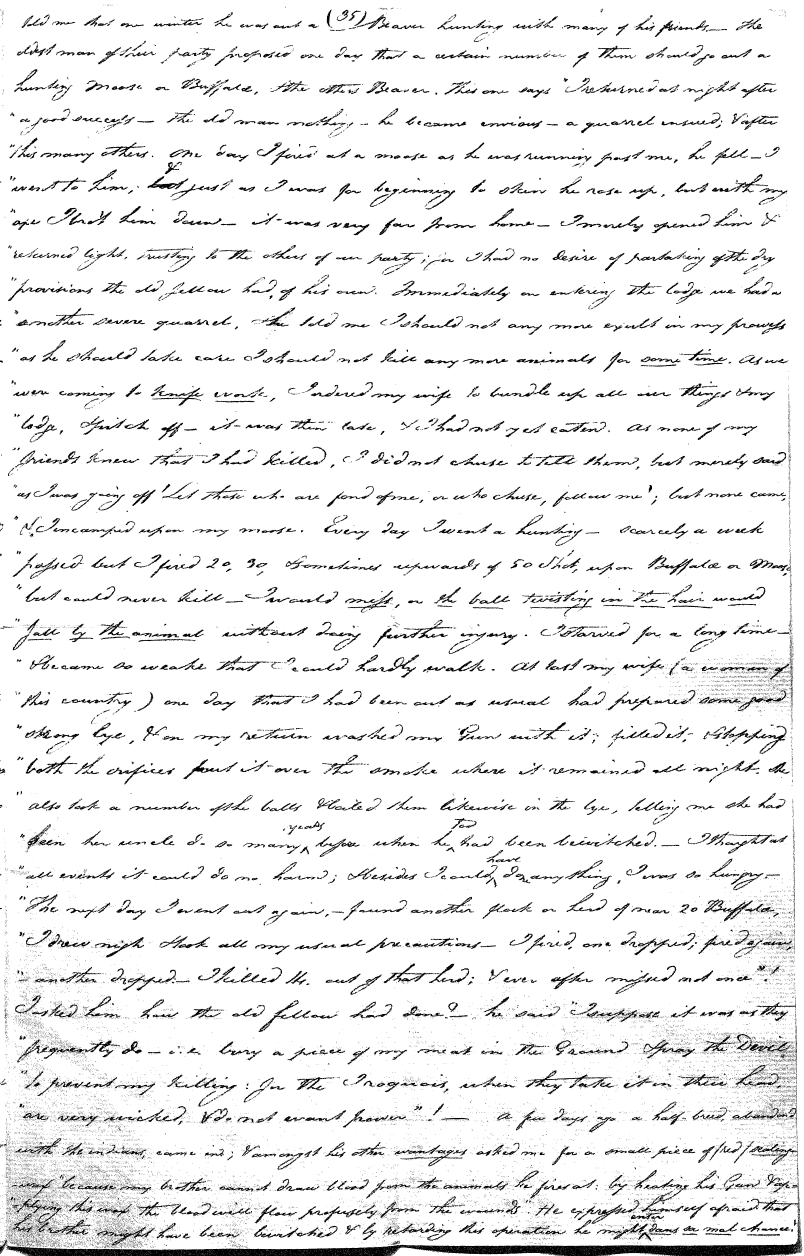 told me that one winter he was out a (35) Beaver hunting with many of his friends — the
oldest man of their party proposed one day that a certain number of them should go out a
hunting Moose or Buffaloe, & the others Beaver. This one says "I returned at night after
"a good success — the old man nothing — he became envious — a quarrel ensued; & after
"this many others. One day I fired at a moose as he was running past me, he fell — I
"went to him; & just as I was for beginning to skin he rose up, but with my
"axe I brot him down — it was very far from home — I merely opened him &
"returned light, trusting to the others of our party; for I had no desire of partaking of the dry
"provisions the old fellow had, of his own. Immediately on entering the lodge we had a
"another severe quarrel, & he told me I should not any more exult in my prowess
"as he should take care I should not kill any more animals for some time. As we
"were coming to knife work, I ordered my wife to bundle up all our things & my
"lodge, & pitch off — it was then late, & I had not yet eaten. As none of my
"friends knew that I had killed, I did not chuse to tell them, but merely said
"as I was going off 'Let those who are fond of me, or who chuse, follow me'; but none came,
"& I incamped upon my moose. Every day I went a hunting — scarcely a week
"passed but I fired 20, 30, & sometimes upwards of 50 Shot, upon Buffaloe or Moose,
"but could never kill — I would miss, or the ball twisting in the hair would
"fall by the animal without doing further injury. I starved for a long time —
"& became so weake that I could hardly walk. At last my wife (a woman of
"this country) one day that I had been out as usual had prepared some good
"strong lye, & on my return washed my Gun with it; filled it, & stopping
"both the orifices put it over the smoke where it remained all night. She
"also took a number of the balls & boiled them likewise in the lye, telling me she had
"seen her uncle do so many years before when he too had been bewitched. — I thought at
"all events it could do no harm; & besides I could have done anything, I was so hungry —
"The next day I went out again, — found another flock or herd of near 20 Buffaloe,
"I drew nigh & took all my usual precautions — I fired, one dropped; fired again,
" — another dropped — I killed out of that herd; & ever after missed not once"!
I asked him how the old fellow had done? — he said "I suppose it was as they
"frequently do — i.e. bury a piece of my meat in the Ground & pray the Devil
"to prevent my killing: for the Iroquois, when they take it in their head,
"are very wicked, & do not want power"! — A few days ago a half-breed, abandoned
with the indians, came in; & amongst his other wantages asked me for a small piece of (red) sealing
wax "because my brother cannot draw blood from the animals he fires at: by heating his Gun & ap-
"plying this wax the blood will flow profusely from the wounds". He expressed himself afraid that
his brother might have been bewitched & by retarding this operation he might enter dans sa mal chance!